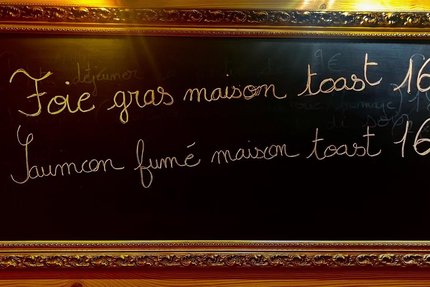 Foie gras maison toast 16
Saumon fumé maison toast 16